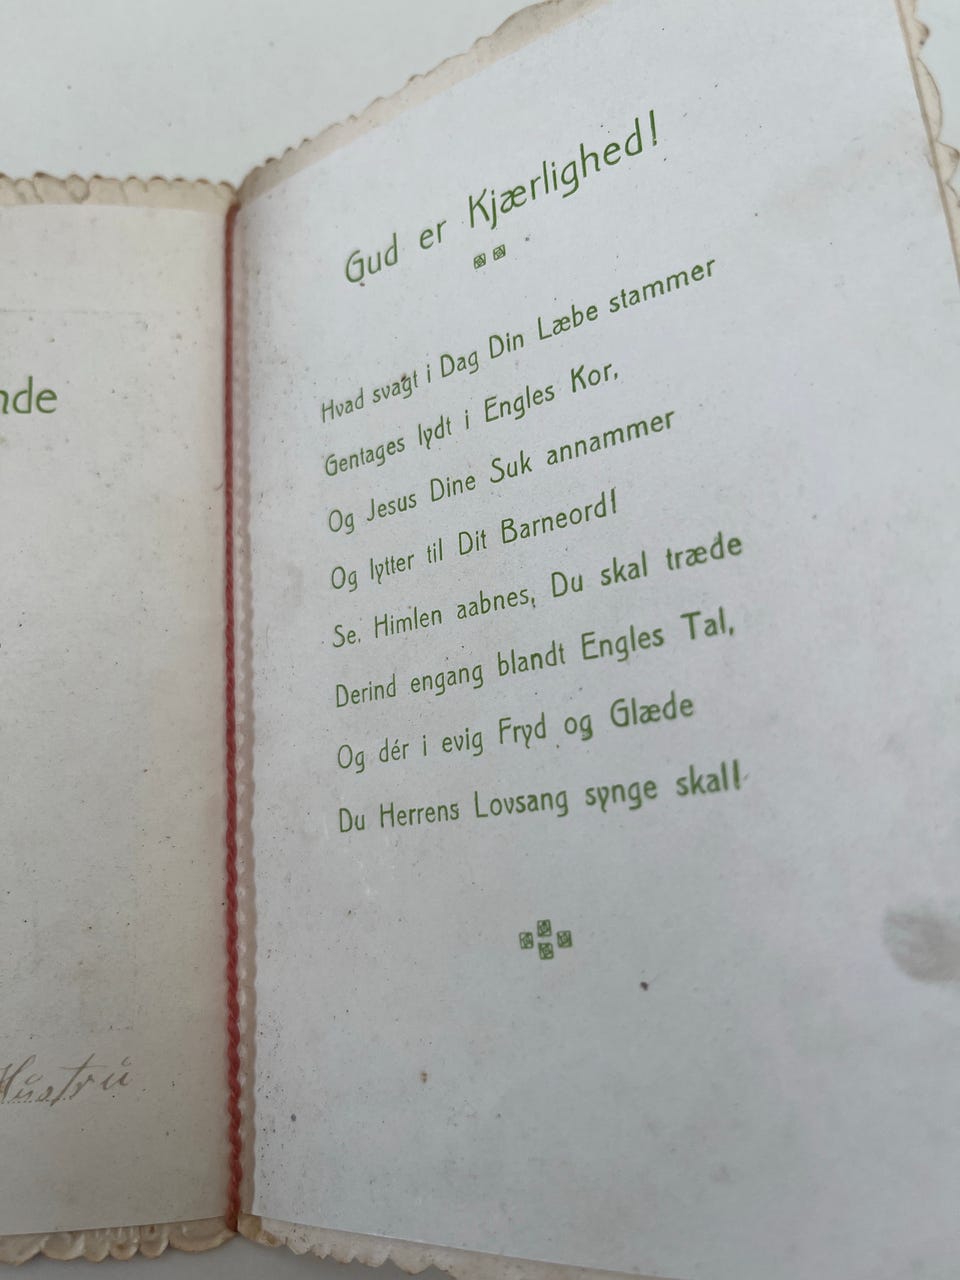 nde
Hustru
Gud er Kjærlighed!
Hvad svagt i Dag Din Læbe stammer
Gentages lydt i Engles Kor,
Og Jesus Dine Suk annammer
Og lytter til Dit Barneord!
Se, Himlen aabnes, Du skal træde
Derind engang blandt Engles Tal,
Og dér i evig Fryd og Glæde
Du Herrens Lovsang synge skal!